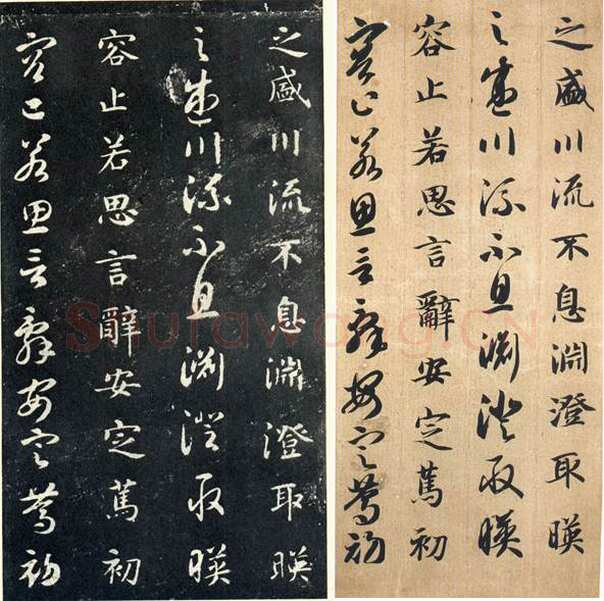 之盛川流不息淵澄取暎
之盛川流不息淵澄取暎
容止若思言辭安定篤初
容止若思言辭安定篤初
之盛川流不息淵澄取暎
之盛川流不息淵澄取暎
容止若思言辭安定篤初
容止若思言辭安定篤初
Shufawang.cn